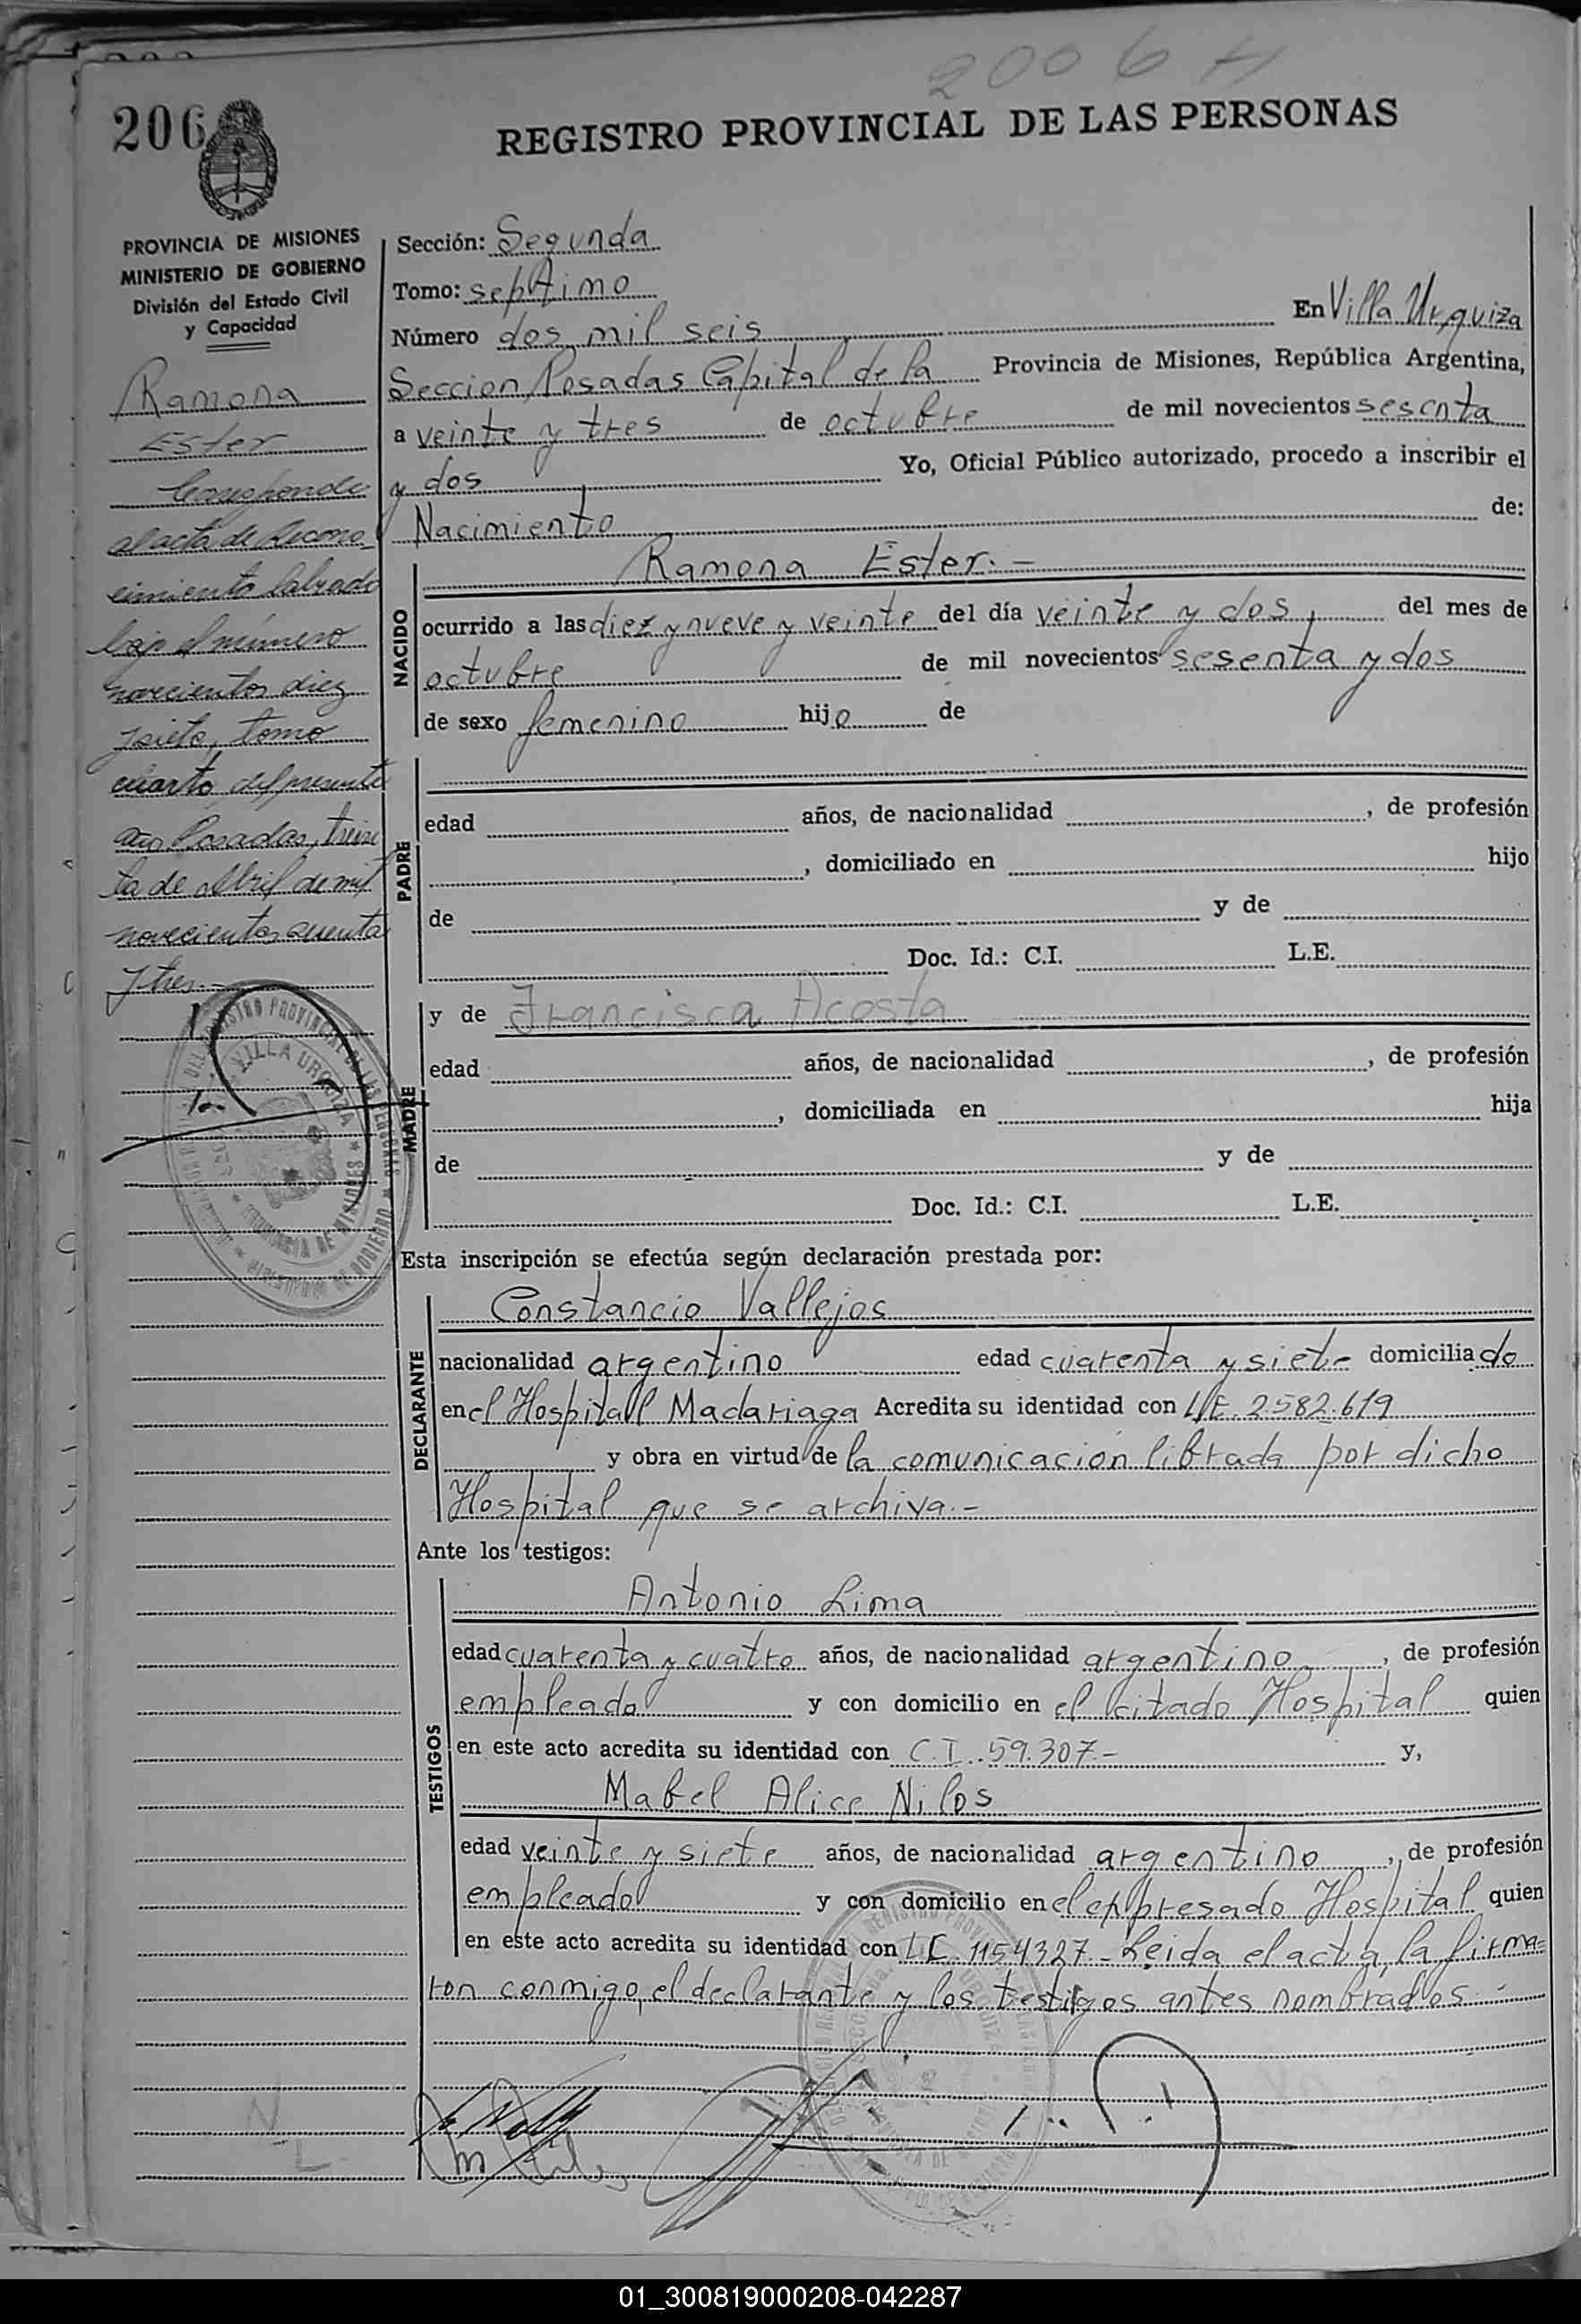 2006 H
206
REGISTRO PROVINCIAL DE LAS PERSONAS
PROVINCIA DE MISIONES
MINISTERIO DE GOBIERNO
División del Estado Civil
y Capacidad
Ramona
Ester
Corresponde
al acta de Recono-
cimiento labrado
bajo el número
novecientos diez
y siete, tomo
cuarto del presente
año Posadas, trein
ta de Abril de mil
novecientos
y tres.-
Sección: Segunda
Tomo: septimo
Número dos mil seis
En Villa Urquiza
Seccion Posadas Capital de la Provincia de Misiones, República Argentina,
a veinte y tres de octubre de mil novecientos sesenta
y dos Yo, Oficial Público autorizado, procedo a inscribir el
Nacimiento de:
NACIDO
Ramona Ester.-
ocurrido a las diez y nueve y veinte del día veinte y dos, del mes de
octubre de mil novecientos sesenta y dos
de sexo femenino hijo de
PADRE
edad años, de nacionalidad , de profesión
, domiciliado en hijo
de y de
Doc. Id.: C.I. L.E.
MADRE
y de Francisca Acosta
edad años, de nacionalidad , de profesión
, domiciliada en hija
de y de
Doc. Id.: C.I. L.E.
Esta inscripción se efectúa según declaración prestada por:
DECLARANTE
Constancio Vallejos
nacionalidad argentino edad cuarenta y siete domiciliado
en el Hospital Madariaga Acredita su identidad con L.E. 2582.619
y obra en virtud de la comunicacion librada por dicho
Hospital que se archiva.-
Ante los testigos:
TESTIGOS
Antonio Lima
edad cuarenta y cuatro años, de nacionalidad argentino, de profesión
empleado y con domicilio en el citado Hospital quien
en este acto acredita su identidad con C.I. 59.307.- y,
Mabel Alice Nilos
edad veinte y siete años, de nacionalidad argentino, de profesión
empleado y con domicilio en el expresado Hospital quien
en este acto acredita su identidad con L.C. 1154327.- Leida el acta, la firma-
ron conmigo, el declarante y los testigos antes nombrados.-
01_300819000208-042287